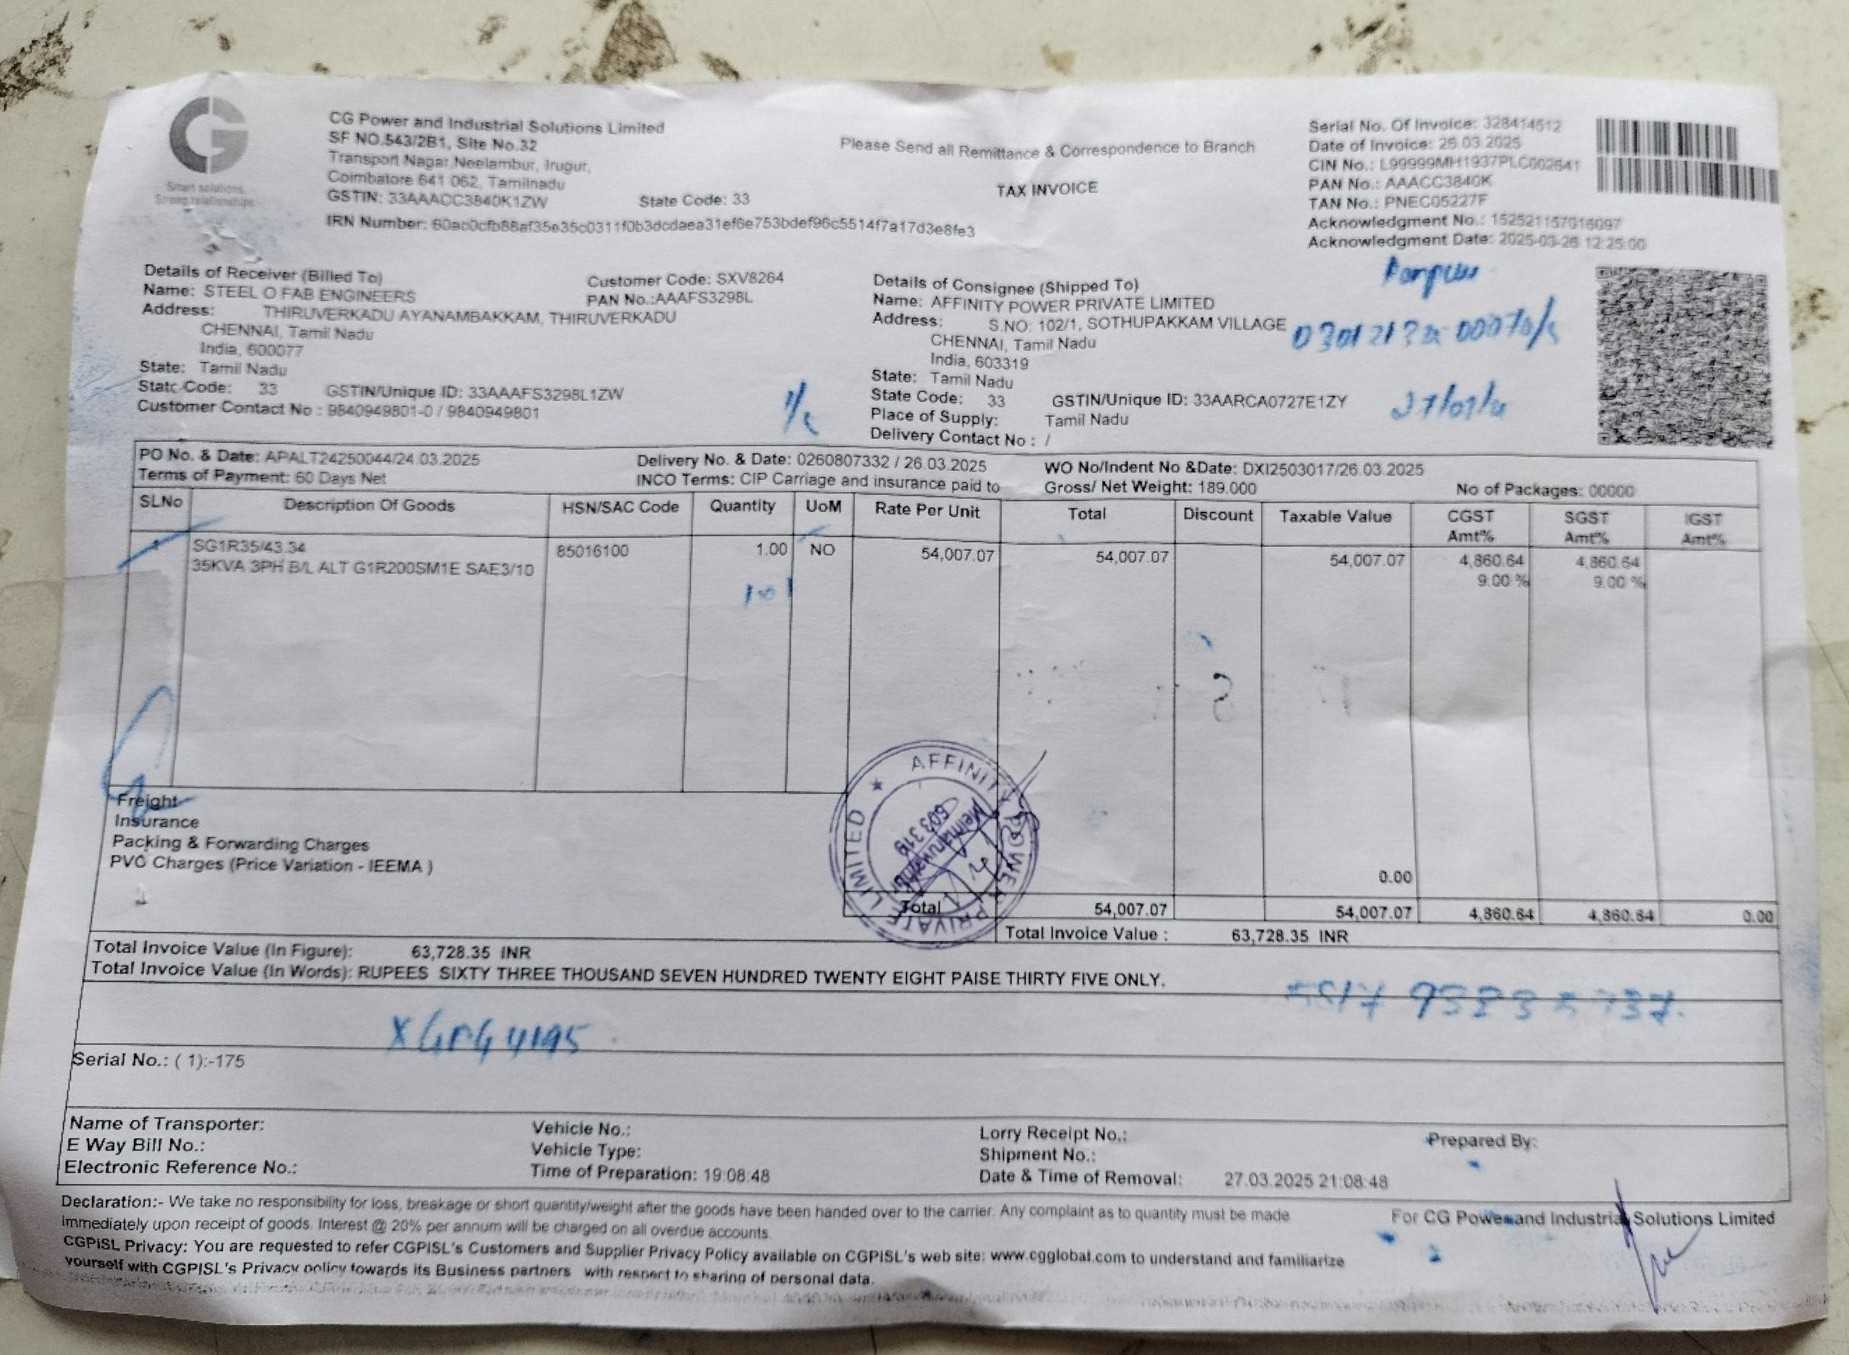 CG
Smart solutions.
Strong relationships.
CG Power and Industrial Solutions Limited
SF NO.543/2B1, Site No.32
Transport Nagar, Neelambur, Irugur,
Coimbatore 641 062, Tamilnadu
GSTIN: 33AAACC3840K1ZW State Code: 33
IRN Number:
Please Send all Remittance & Correspondence to Branch
TAX INVOICE
Serial No. Of Invoice: 328414512
Date of Invoice: 26.03.2025
CIN No.: L99999MH1937PLC002641
PAN No.: AAACC3840K
TAN No.: PNEC05227F
Acknowledgment No.: 152521157016097
Acknowledgment Date: 2025-03-26 12:25:00
Details of Receiver (Billed To) Customer Code: SXV8264
Name: STEEL O FAB ENGINEERS PAN No.:AAAFS3298L
Address: THIRUVERKADU AYANAMBAKKAM, THIRUVERKADU
CHENNAI, Tamil Nadu
India, 600077
State: Tamil Nadu
State Code: 33 GSTIN/Unique ID: 33AAAFS3298L1ZW
Customer Contact No : 9840949801-0 / 9840949801
Details of Consignee (Shipped To)
Name: AFFINITY POWER PRIVATE LIMITED
Address: S.NO: 102/1, SOTHUPAKKAM VILLAGE
CHENNAI, Tamil Nadu
India, 603319
State: Tamil Nadu
State Code: 33 GSTIN/Unique ID: 33AARCA0727E1ZY
Place of Supply: Tamil Nadu
Delivery Contact No : /
PO No. & Date: APALT24250044/24.03.2025 Delivery No. & Date: 0260807332 / 26.03.2025 WO No/Indent No &Date: DXI2503017/26.03.2025
Terms of Payment: 60 Days Net INCO Terms: CIP Carriage and insurance paid to Gross/ Net Weight: 189.000 No of Packages: 00000
SLNo Description Of Goods HSN/SAC Code Quantity UoM Rate Per Unit Total Discount Taxable Value CGST Amt% SGST Amt% IGST Amt%
SG1R35/43.34 85016100 1.00 NO 54,007.07 54,007.07 54,007.07 4,860.64 4,860.64
35KVA 3PH B/L ALT G1R200SM1E SAE3/10 9.00 % 9.00 %
Freight
Insurance
Packing & Forwarding Charges
PVC Charges (Price Variation - IEEMA )
0.00
AFFINITY POWER PRIVATE LIMITED
603 319
Total 54,007.07 54,007.07 4,860.64 4,860.64 0.00
Total Invoice Value : 63,728.35 INR
Total Invoice Value (In Figure): 63,728.35 INR
Total Invoice Value (In Words): RUPEES SIXTY THREE THOUSAND SEVEN HUNDRED TWENTY EIGHT PAISE THIRTY FIVE ONLY.
Serial No.: ( 1):-175
Name of Transporter: Vehicle No.: Lorry Receipt No.: Prepared By:
E Way Bill No.: Vehicle Type: Shipment No.:
Electronic Reference No.: Time of Preparation: 19:08:48 Date & Time of Removal: 27.03.2025 21:08:48
Declaration:- We take no responsibility for loss, breakage or short quantity/weight after the goods have been handed over to the carrier. Any complaint as to quantity must be made
immediately upon receipt of goods. Interest @ 20% per annum will be charged on all overdue accounts.
CGPISL Privacy: You are requested to refer CGPISL's Customers and Supplier Privacy Policy available on CGPISL's web site: www.cgglobal.com to understand and familiarize
yourself with CGPISL's Privacy policy towards its Business partners with respect to sharing of personal data.
For CG Power and Industrial Solutions Limited